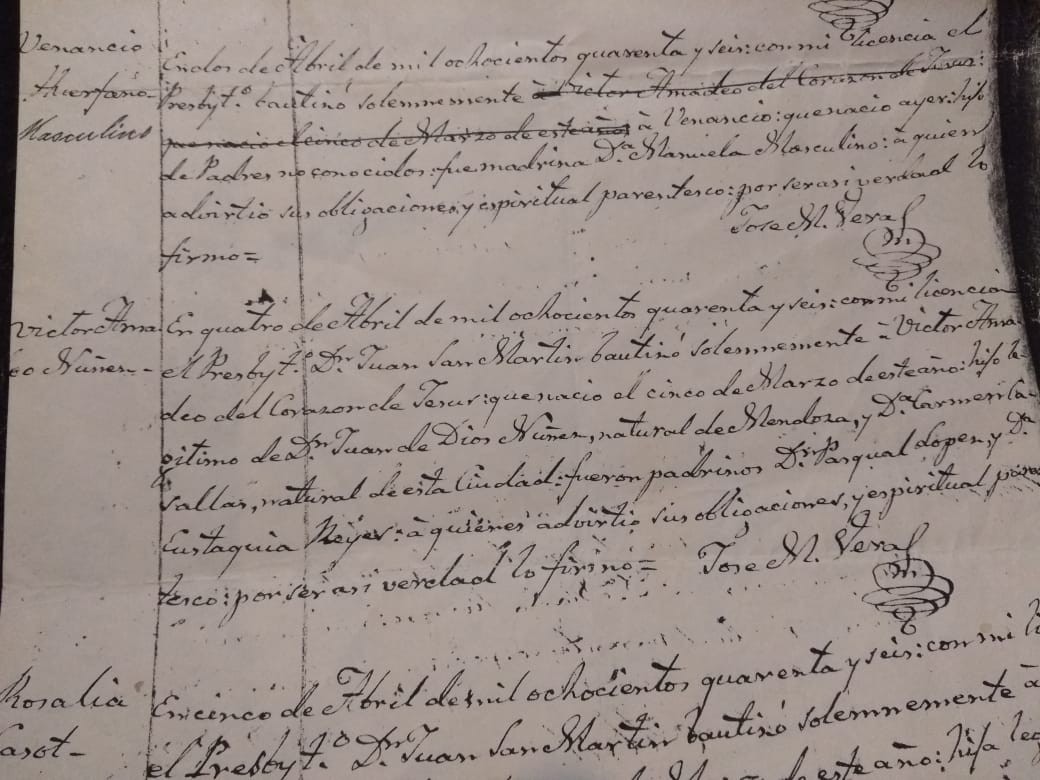 Venancio
Huerfano
Masculino
En dos de Abril de mil ochocientos quarenta y seis: con mi licencia el
Presbyt.º bautisó solemnemente à Victor Amadeo del Corazon de Jesus:
que nacio el cinco de Marzo de este año à Venancio: que nacio ayer: hijo
de Padres no conocidos: fue madrina D.ª Manuela Masculino: à quien
advirtio sus obligaciones, y espiritual parentesco: por ser asi verdad lo
firmo=
Jose M. Veral
Victor Ama
deo Nuñez-
En quatro de Abril de mil ochocientos quarenta y seis: con mi licencia
el Presbyt.º Dn. Juan San Martin bautisó solemnemente à Victor Ama-
deo del Corazon de Jesus: que nacio el cinco de Marzo de este año: hijo le-
gitimo de Dn. Juan de Dios Nuñez, natural de Mendoza, y D.ª Carmen Ca-
sallas, natural de esta Ciudad: fueron padrinos Dn. Pasqual Lopez, y D.ª
Eustaquia Reyes: à quienes advirtio sus obligaciones, y espiritual paren
tesco: por ser asi verdad lo firmo= Jose M. Veral
Rosalia
En cinco de Abril de mil ochocientos quarenta y seis: con mi li
el Presbyt.º Dn. Juan San Martin bautisó solemnemente à
de este año: hija leg